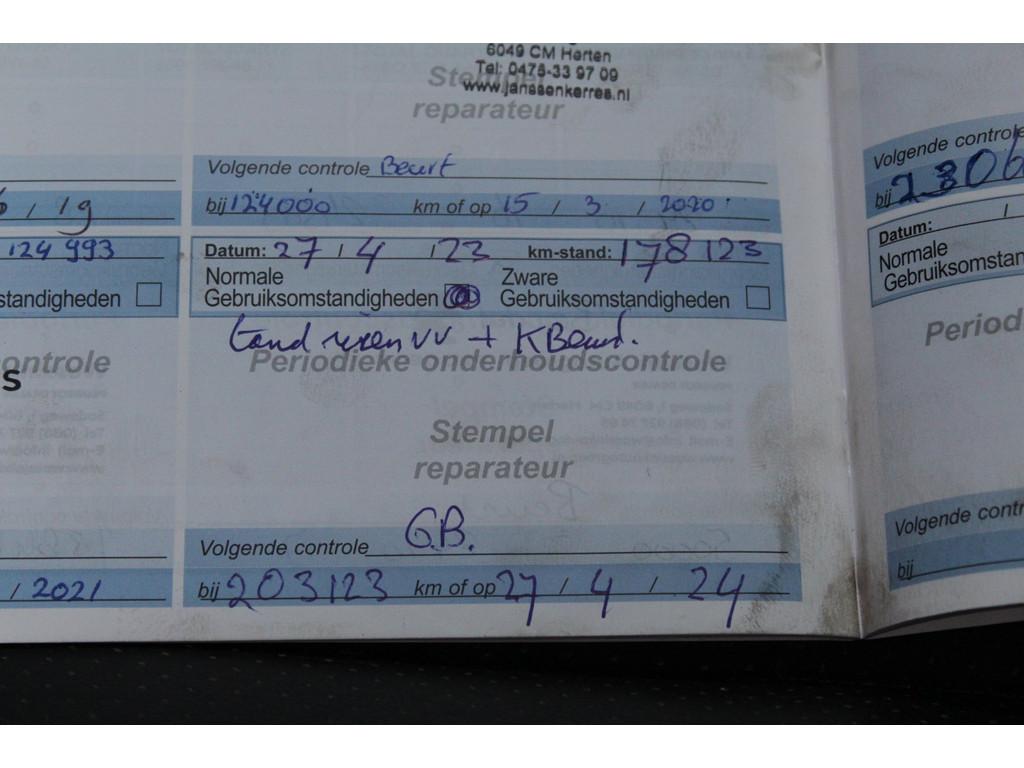 6049 CM Herten
Tel: 0475-33 97 09
www.janssenkerres.nl
Stempel
reparateur
Volgende controle Beurt
bij 124000 km of op 15 / 3 / 2020
/ 19
124 993
standigheden
ontrole
s
/ 2021
Datum: 27 / 4 / 23 km-stand: 178 123
Normale
Gebruiksomstandigheden
Zware
Gebruiksomstandigheden
tand riem VV + K Beurt.
Periodieke onderhoudscontrole
Stempel
reparateur
Volgende controle G.B.
bij 203123 km of op 27 / 4 / 24
Volgende controle
bij 2306
Datum: /
Normale
Gebruiksomstan
Period
Volgende contr
bij